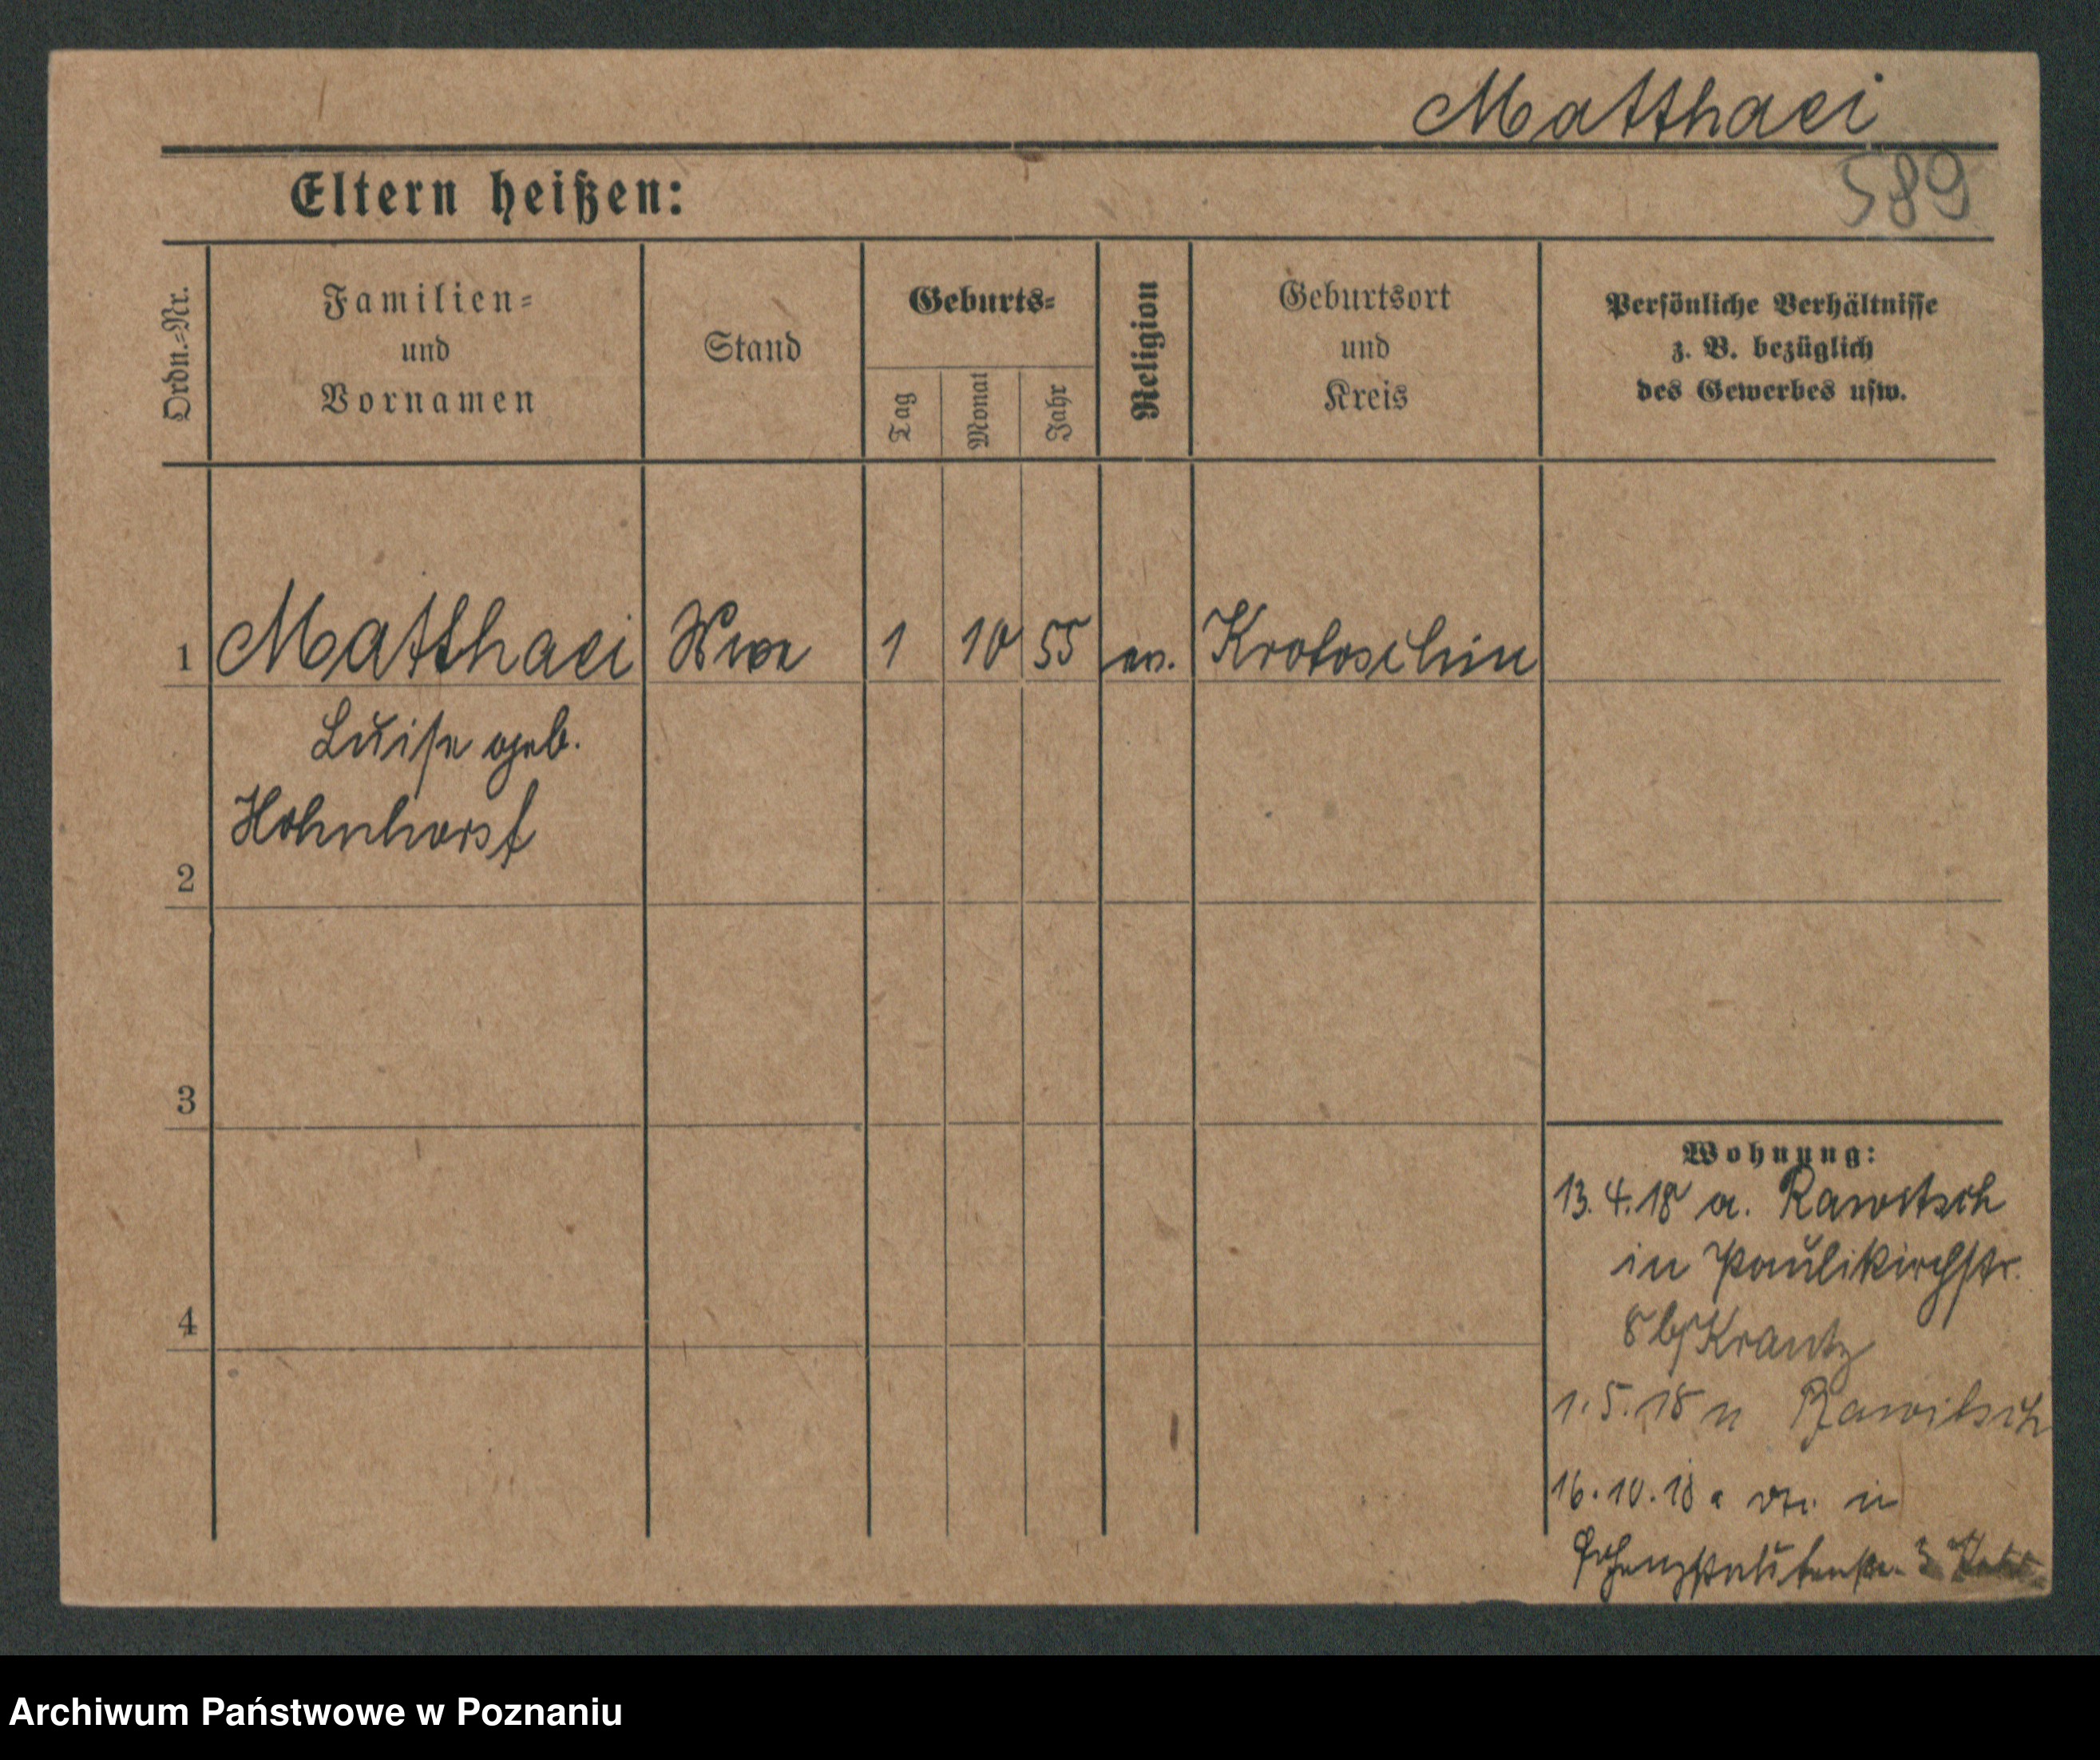 Matthaei
589
Eltern heißen:
Ordn.-Nr.
Familien-
und
Vornamen
Stand
Geburts-
Tag
Monat
Jahr
Religion
Geburtsort
und
Kreis
Persönliche Verhältnisse
z. B. bezüglich
des Gewerbes usw.
1 Matthaei Wwe 1 10 55 ev. Krotoschin
Luise geb.
Hohnhorst
2
3
4
Wohnung:
13. 4. 18 a. Rawitsch
in Paulikirchstr.
8 b/Krantz
1. 5. 18 n Rawitsch
16. 10. 18 a in
3
Archiwum Państwowe w Poznaniu